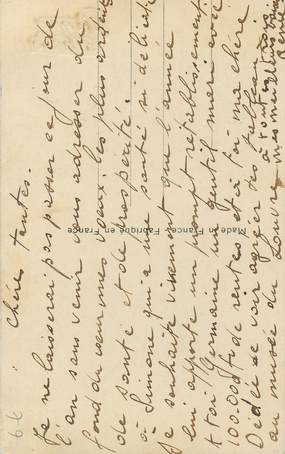 Chères tantes.
Je ne laisserai pas passer ce jour de
l'an sans venir vous adresser du
fond du cœur mes vœux les plus ardents
de santé et de prospérité.
à Simone qui a une santé si délicate
je souhaite vivement que l'année
lui apporte un prompt rétablissement
à toi Germaine un gentil mari avec
100.000 f de rente et à toi ma chère
Dédée de voir exiger des tableaux
au musée du Louvre
à toutes trois
mes meilleurs baisers
Made in France, Fabriqué en France
66